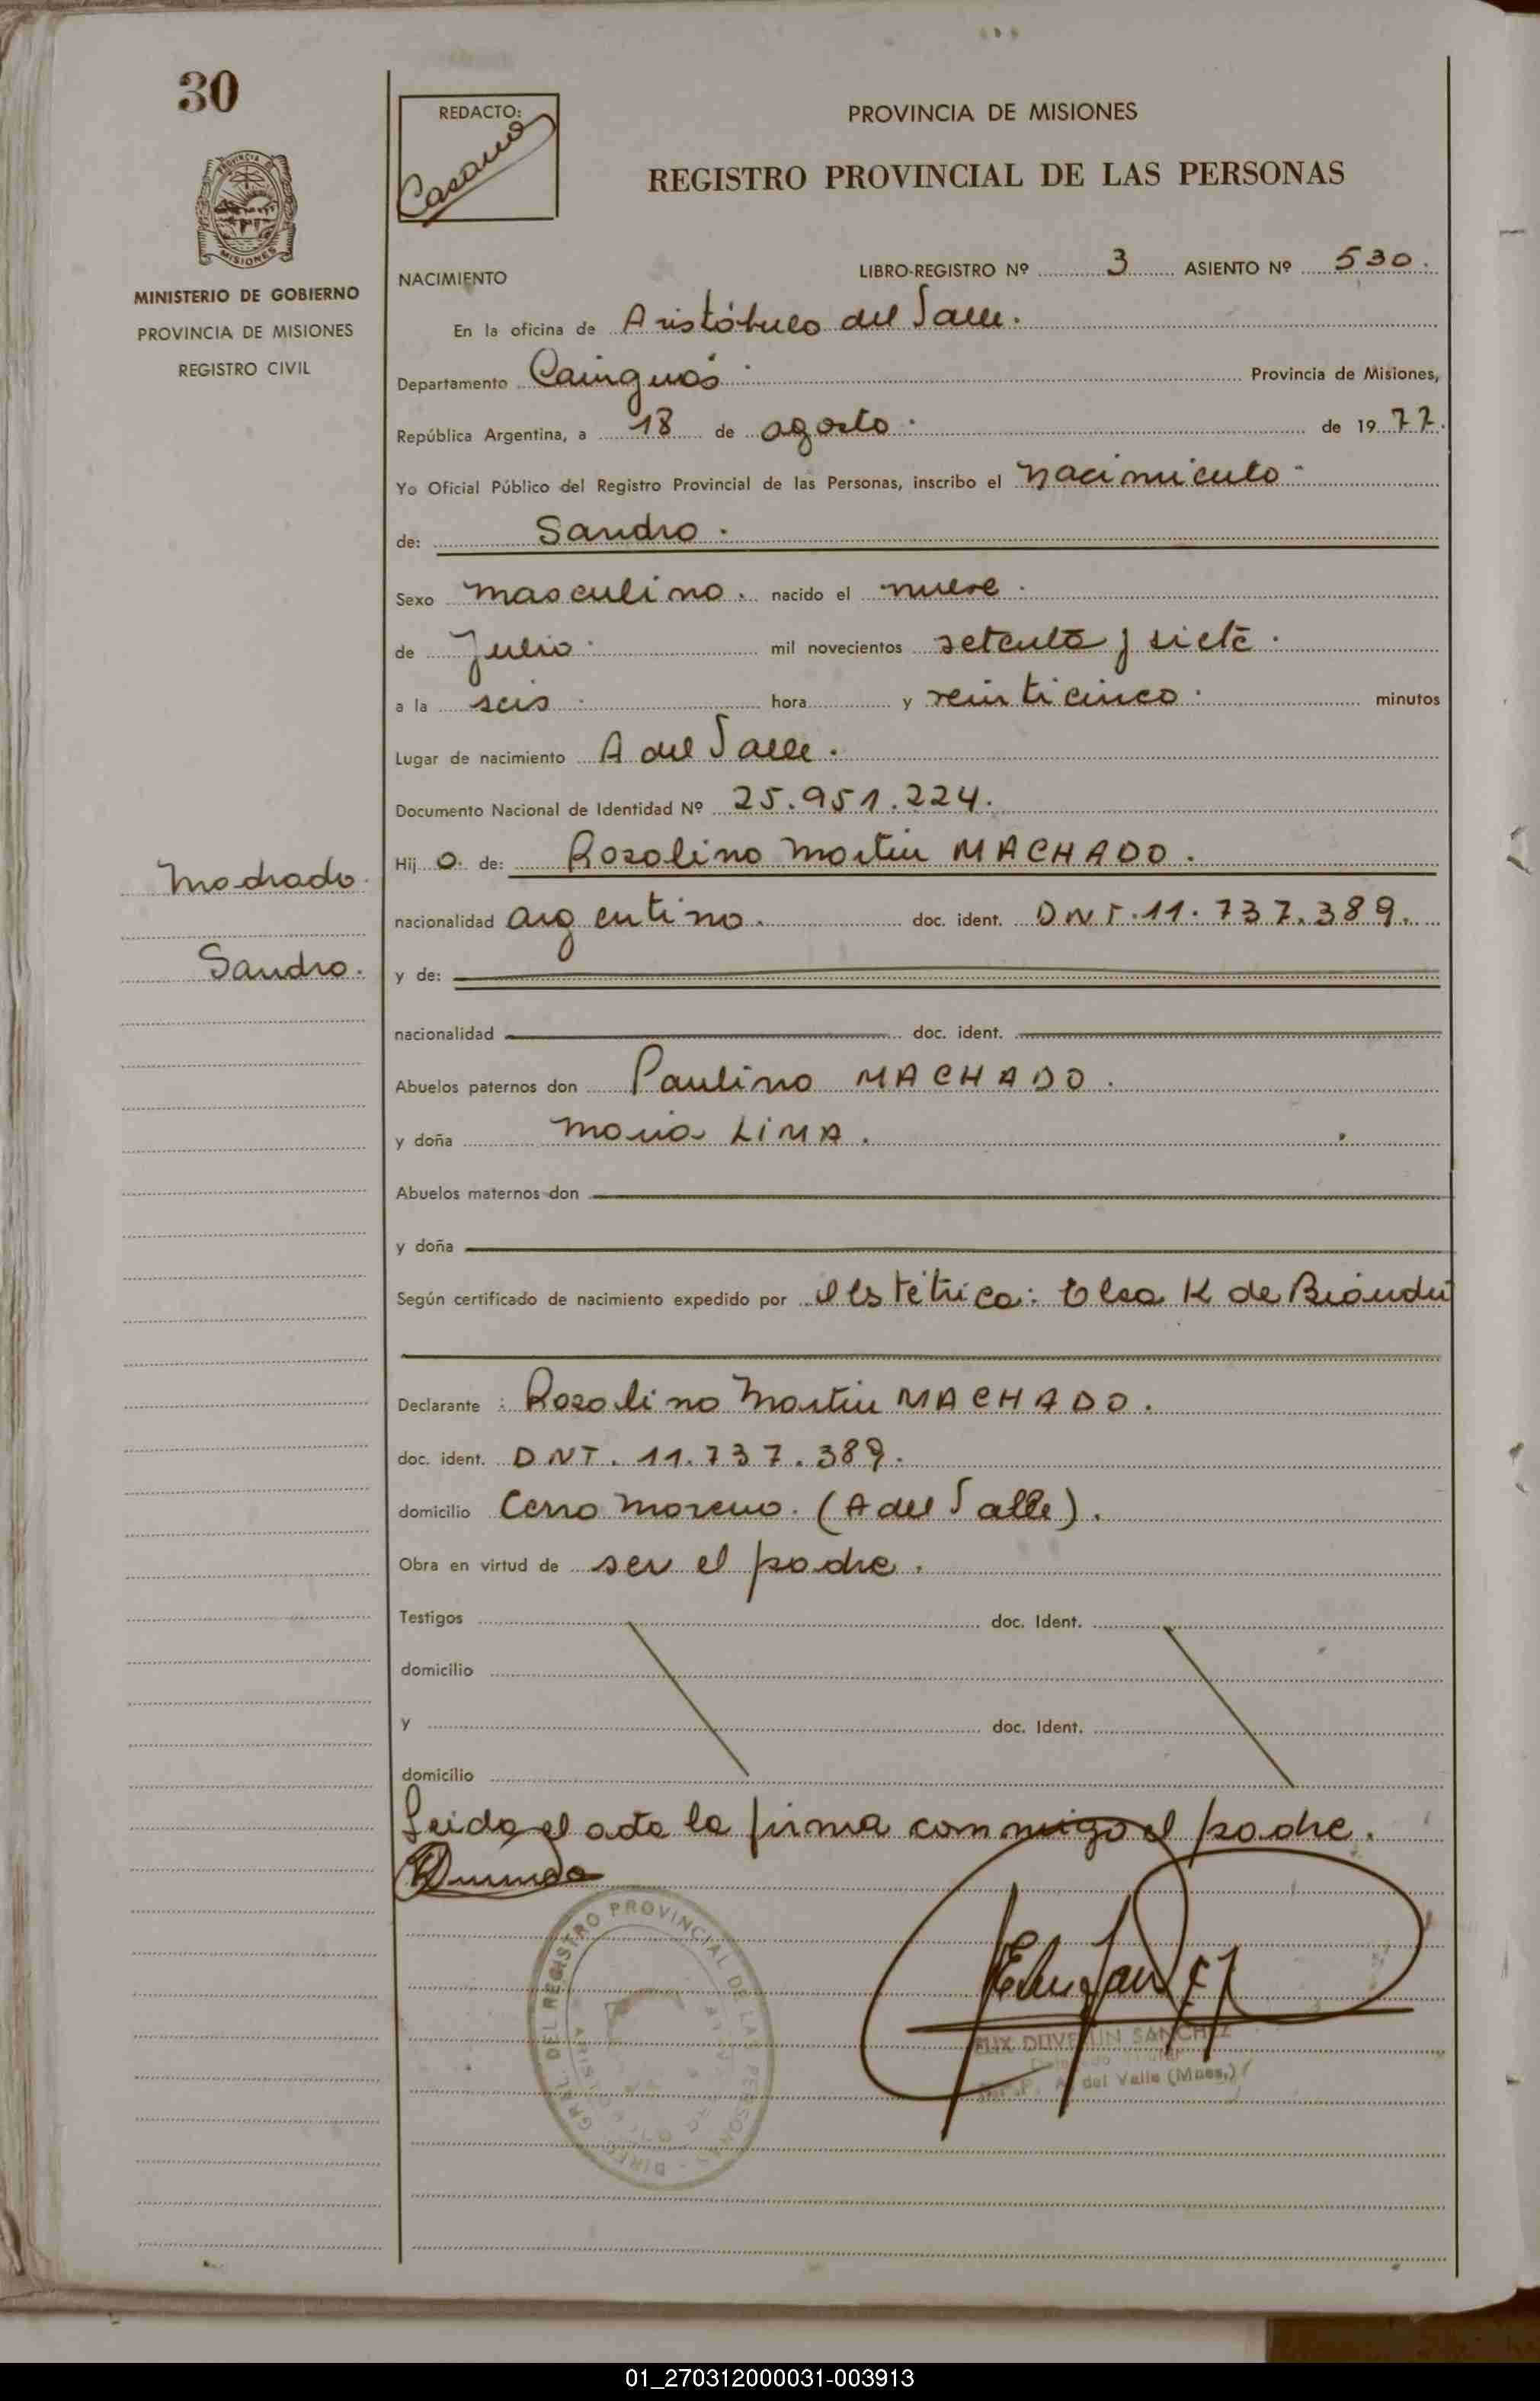 30
REDACTO:
PROVINCIA DE MISIONES
REGISTRO PROVINCIAL DE LAS PERSONAS
PROVINCIA DE
MISIONES
MINISTERIO DE GOBIERNO
PROVINCIA DE MISIONES
REGISTRO CIVIL
NACIMIENTO
LIBRO-REGISTRO Nº 3 ASIENTO Nº 530.
En la oficina de Aristóbulo del Valle.
Departamento Cainguás Provincia de Misiones,
República Argentina, a 18 de agosto. de 1977.
Yo Oficial Público del Registro Provincial de las Personas, inscribo el nacimiento
de: Sandro.
Sexo masculino. nacido el nueve.
de Julio. mil novecientos setenta y siete.
a la seis. hora y veinticinco. minutos
Lugar de nacimiento A del Valle.
Documento Nacional de Identidad Nº 25.951.224.
Machado.
Hijo de: Rosolino Martin MACHADO.
nacionalidad argentino. doc. ident. DNI. 11.737.389.
Sandro.
y de:
nacionalidad doc. ident.
Abuelos paternos don Paulino MACHADO.
y doña Maria LIMA.
Abuelos maternos don
y doña
Según certificado de nacimiento expedido por obstétrica: Elsa K de
Declarante: Rosolino Martin MACHADO.
doc. ident. DNI. 11.737.389.
domicilio Cerro Moreno. (A del Valle).
Obra en virtud de ser el padre.
Testigos doc. Ident.
domicilio
y doc. Ident.
domicilio
Leida el acta la firma conmigo el padre.
DEL REGISTRO PROVINCIAL DE LAS PERSONAS - DIREC. GRAL
SANCHEZ
A. del Valle (Mnes.)
01_270312000031-003913